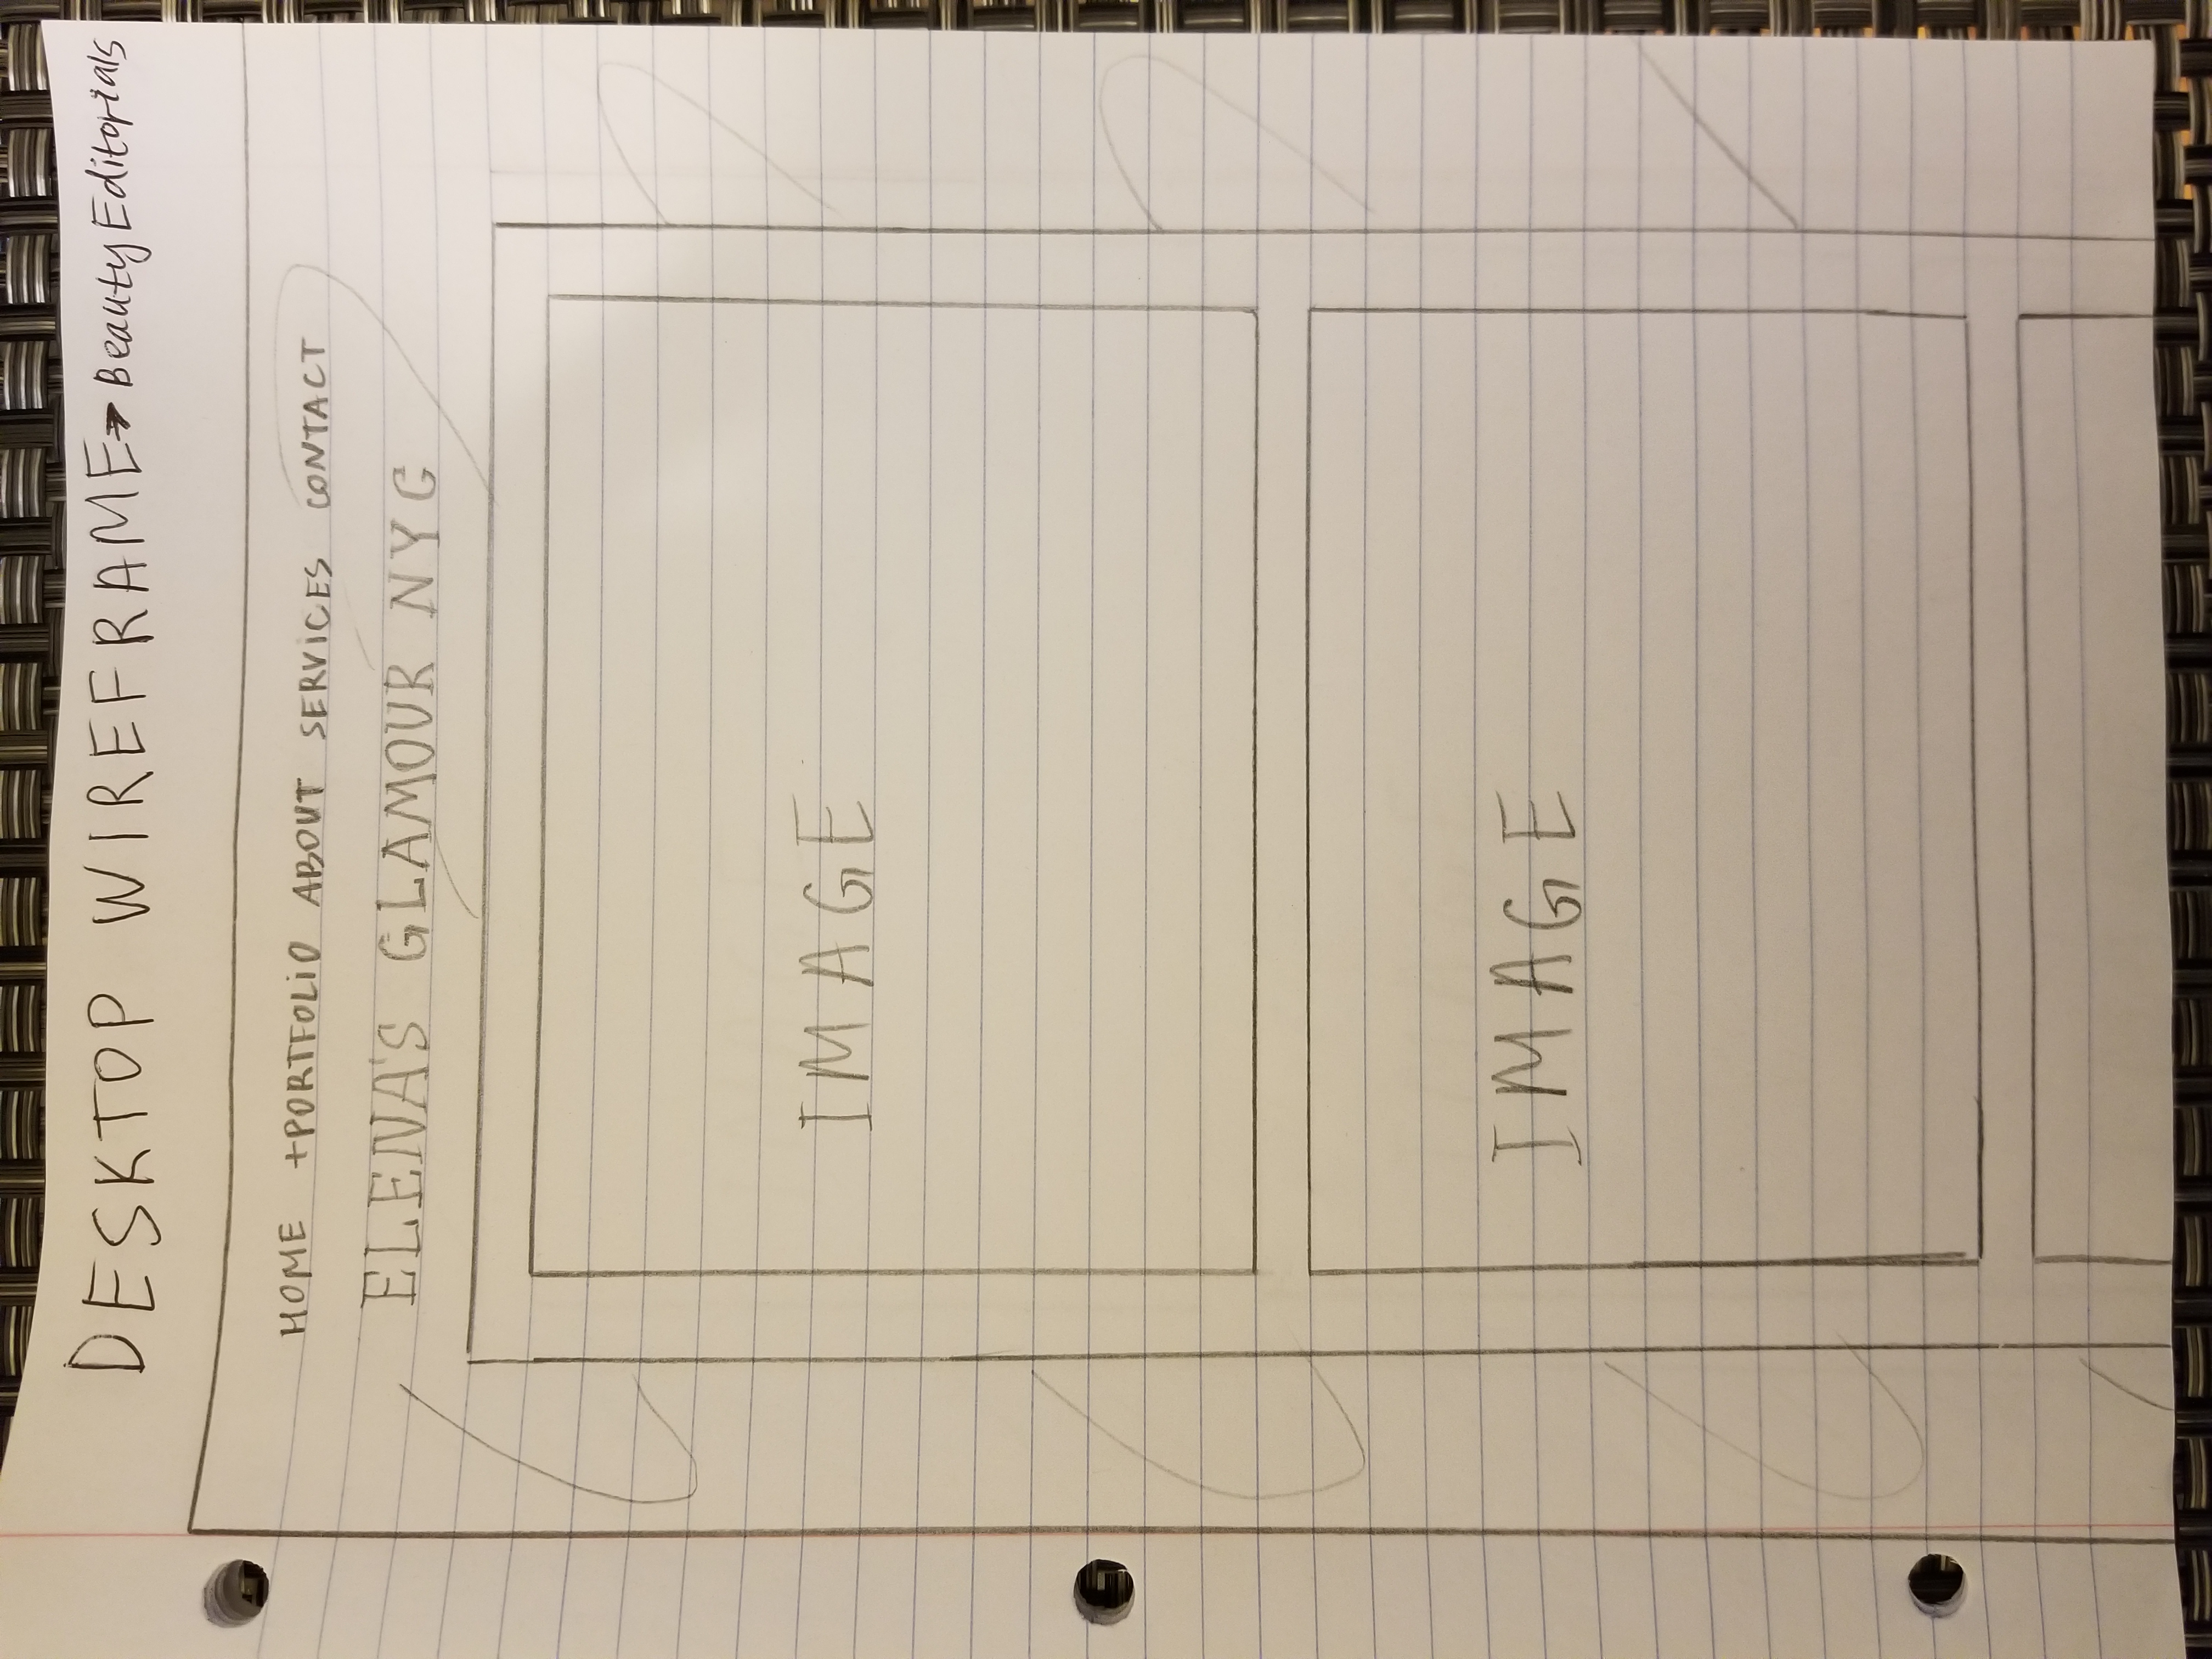 DESKTOP WIREFRAME → Beauty Editorials
HOME +PORTFOLIO ABOUT SERVICES CONTACT
ELENA'S GLAMOUR NYC
IMAGE
IMAGE